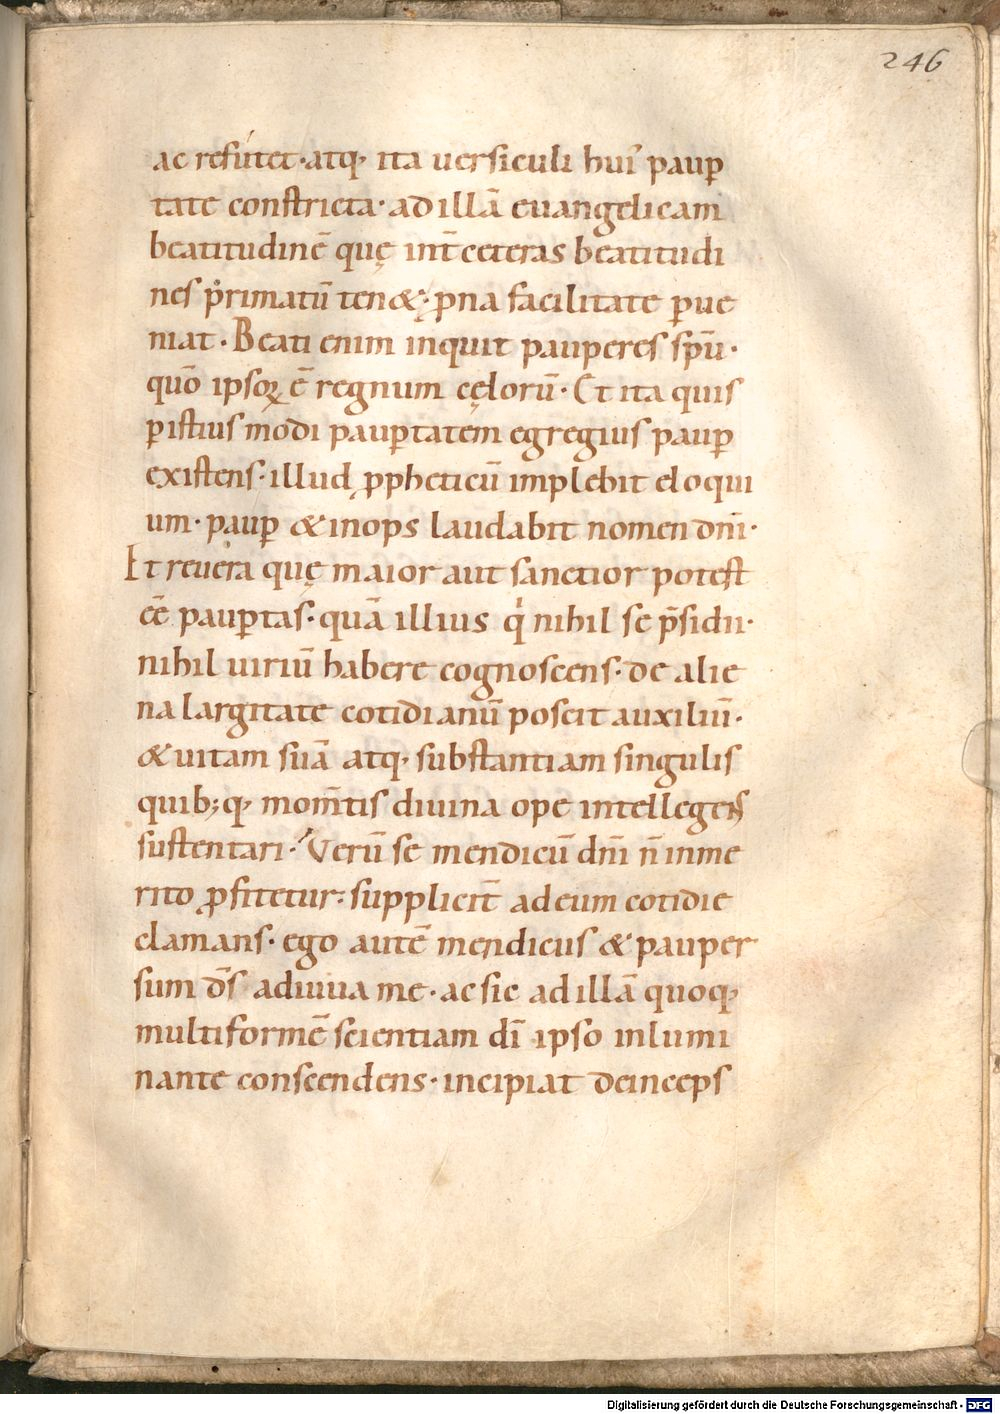 246
ac refutet · atq· ita uersiculi hui᾽ paup̲
tate constricta · ad illā euangelicam
beatitudinē quę int̄ ceteras beatitudi
nes p̄rimatū ten& · p̲na facilitate p̲ue
niat · Beati enim inquit pauperes sp̄u ·
quō ipsoꝝ ē regnum cęlorū · Et ita quis
p̲ istius modi paup̲tatem egregius paup̲
existens · illud ꝓpheticū implebit eloqui
um · paup̲ & inops laudabit nomen dn̄i ·
Et reuera quę maior aut sanctior potest
eē paup̲tas · quā illius qͥ nihil se p̄sidii ·
nihil uiriū habere cognoscens · de alie
na largitate cotidianū poscit auxiliū ·
& uitam suā atq· substantiam singulis
quib;q· mom̄tis diuina ope intellegens
sustentari · Verū se mendicū dn̄i n̄ inme
rito ꝓfitetur : supplicit̄ ad eum cotidie
clamans · ego autē mendicus & pauper
sum d̄s adiuua me · ac sic ad illā quoq·
multiformē scientiam dī ipso inlumi
nante conscendens · incipiat deinceps
Digitalisierung gefördert durch die Deutsche Forschungsgemeinschaft - DFG